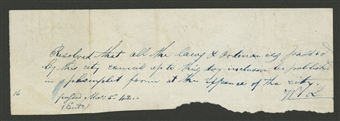 Resolved that all the laws & Ordinances passed
by this city council up to this day inclusive be publish
in pamphlet form at the expence of the city.
passed Mar. 5. 42